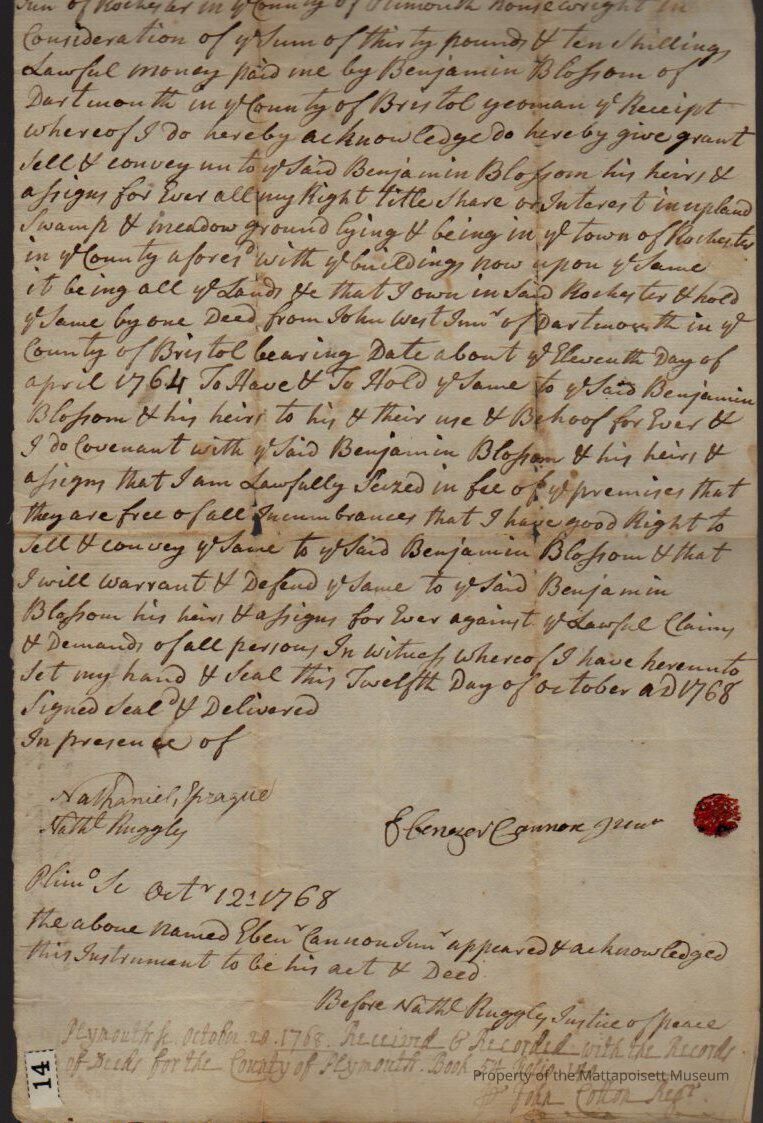 Jun of Rochester in yᵉ County of Plimouth housewright in
Consideration of yᵉ Sum of thirty pounds & ten shillings
Lawful money paid me by Benjamin Blossom of
Dartmouth in yᵉ County of Bristol yeoman yᵉ Receipt
whereof I do hereby acknowledge do hereby give grant
Sell & convey unto yᵉ Said Benjamin Blossom his heirs &
assigns for Ever all my Right title Share or Interest in upland
Swamp & meadow ground lying & being in yᵉ town of Rochester
in yᵉ County aforesᵈ with yᵉ buildings now upon yᵉ Same
it being all yᵉ Lands &c that I own in Said Rochester & hold
yᵉ Same by one Deed from John West Junʳ of Dartmouth in yᵉ
County of Bristol bearing Date about yᵉ Eleventh Day of
april 1764 To Have & To Hold yᵉ Same to yᵉ Said Benjamin
Blossom & his heirs to his & their use & Behoof for Ever &
I do Covenant with yᵉ Said Benjamin Blossom & his heirs &
assigns that I am Lawfully Seized in fee of yᵉ premises that
they are free of all Incumbrances that I have good Right to
Sell & convey yᵉ Same to yᵉ Said Benjamin Blossom & that
I will warrant & Defend yᵉ Same to yᵉ Said Benjamin
Blossom his heirs & assigns for Ever against yᵉ Lawful Claims
& Demands of all persons In witness whereof I have hereunto
Set my hand & Seal this Twelfth Day of October AD 1768
Signed Sealᵈ & Delivered
In presence of
Nathaniel Sprague
Nathˡ Ruggles
Ebenezer Cannon Junʳ
Plimᵒ Sc Octʳ 12: 1768
the above named Ebenʳ Cannon Junʳ appeared & acknowledged
this Instrument to be his act & Deed
Before Nathˡ Ruggles Justice of peace
Plymouth Sc. October 20. 1768. Received & Recorded with the Records
of Deeds for the County of Plymouth. Book 54 folio
John Cotton Regʳ.
14
Property of the Mattapoisett Museum